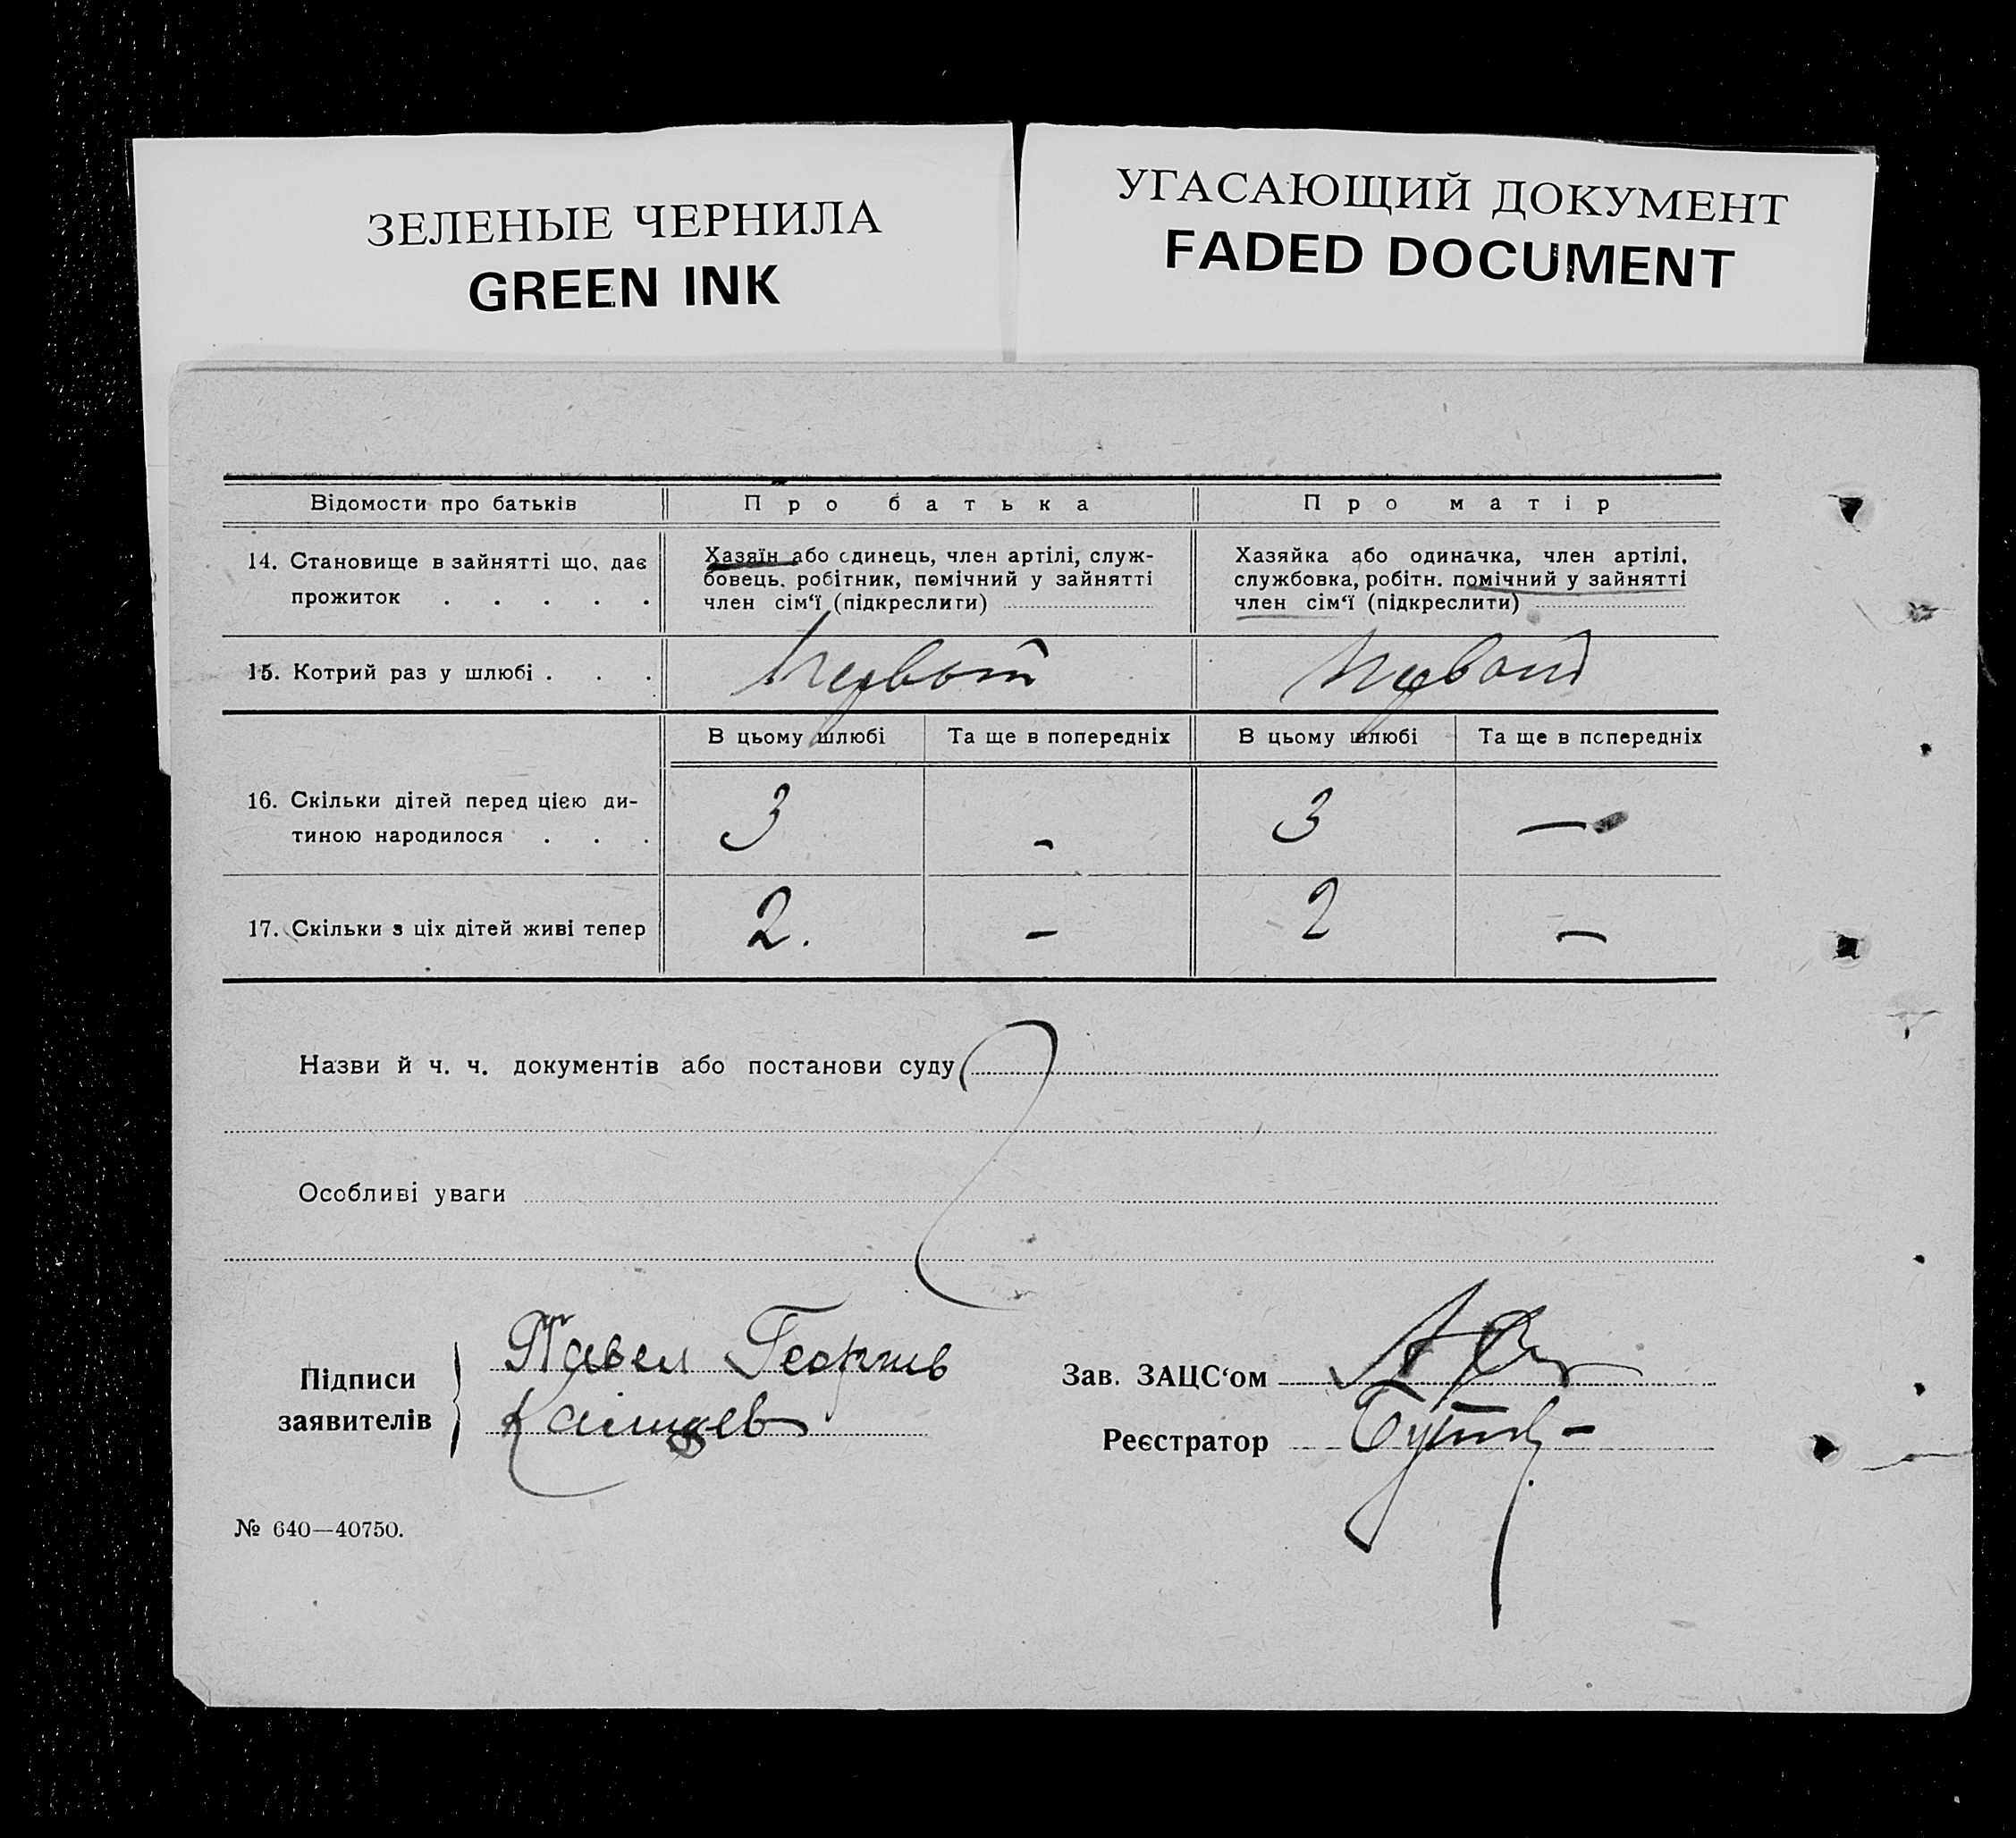 ЗЕЛЕНЫЕ ЧЕРНИЛА
GREEN INK
УГАСАЮЩИЙ ДОКУМЕНТ
FADED DOCUMENT
Відомости про батьків
Про батька
Про матір
14. Становище в зайнятті що, дає
прожиток . . . . .
Хазяїн або єдинець, член артілі, служ-
бовець. робітник, помічний у зайнятті
член сім‘ї (підкреслити)
Хазяйка або одиначка, член артілі,
службовка, робітн. помічний у зайнятті
член сім‘ї (підкреслити)
15. Котрий раз у шлюбі . . .
Первый
Первый
В цьому шлюбі
Та ще в попередніх
В цьому шлюбі
Та ще в попередніх
16. Скільки дітей перед цією ди-
тиною народилося . . .
3
-
3
—
17. Скільки з ціх дітей живі тепер
2.
-
2
—
Назви й ч. ч. документів або постанови суду
Особливі уваги
Підписи
заявителів
Павел Георгиев
Зав. ЗАЦС‘ом
Реєстратор
№ 640—40750.